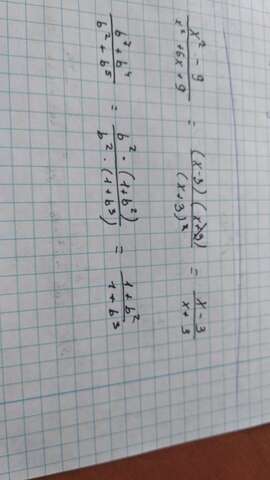 x² - 9 / x² + 6x + 9 = (x-3)(x+3) / (x+3)² = x-3 / x+3
b² + b⁴ / b² + b⁵ = b² · (1+b²) / b² · (1+b³) = 1+b² / 1+b³